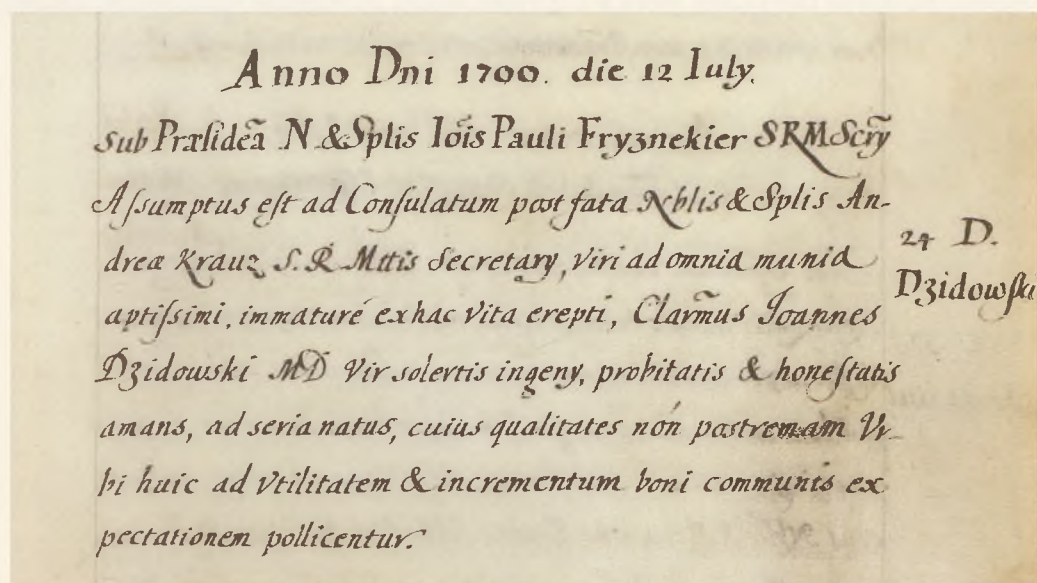 Anno Dni 1700. die 12 Iuly.
Sub Præsideã N. & Splis Iois Pauli Fryznekier SRM Scry
Assumptus est ad Consulatum post fata Nblis & Splis An-
dreæ Krauz S. R Mttis Secretary, viri ad omnia munia
aptissimi, immaturé ex hac vita erepti, Clarm̃us Joannes
Dzidowski MD Vir solertis ingeny, probitatis & honestatis
amans, ad seria natus, cuius qualitates non postremam Vr-
bi huic ad vtilitatem & incrementum boni communis ex
pectationem pollicentur.
24 D.
Dzidowski